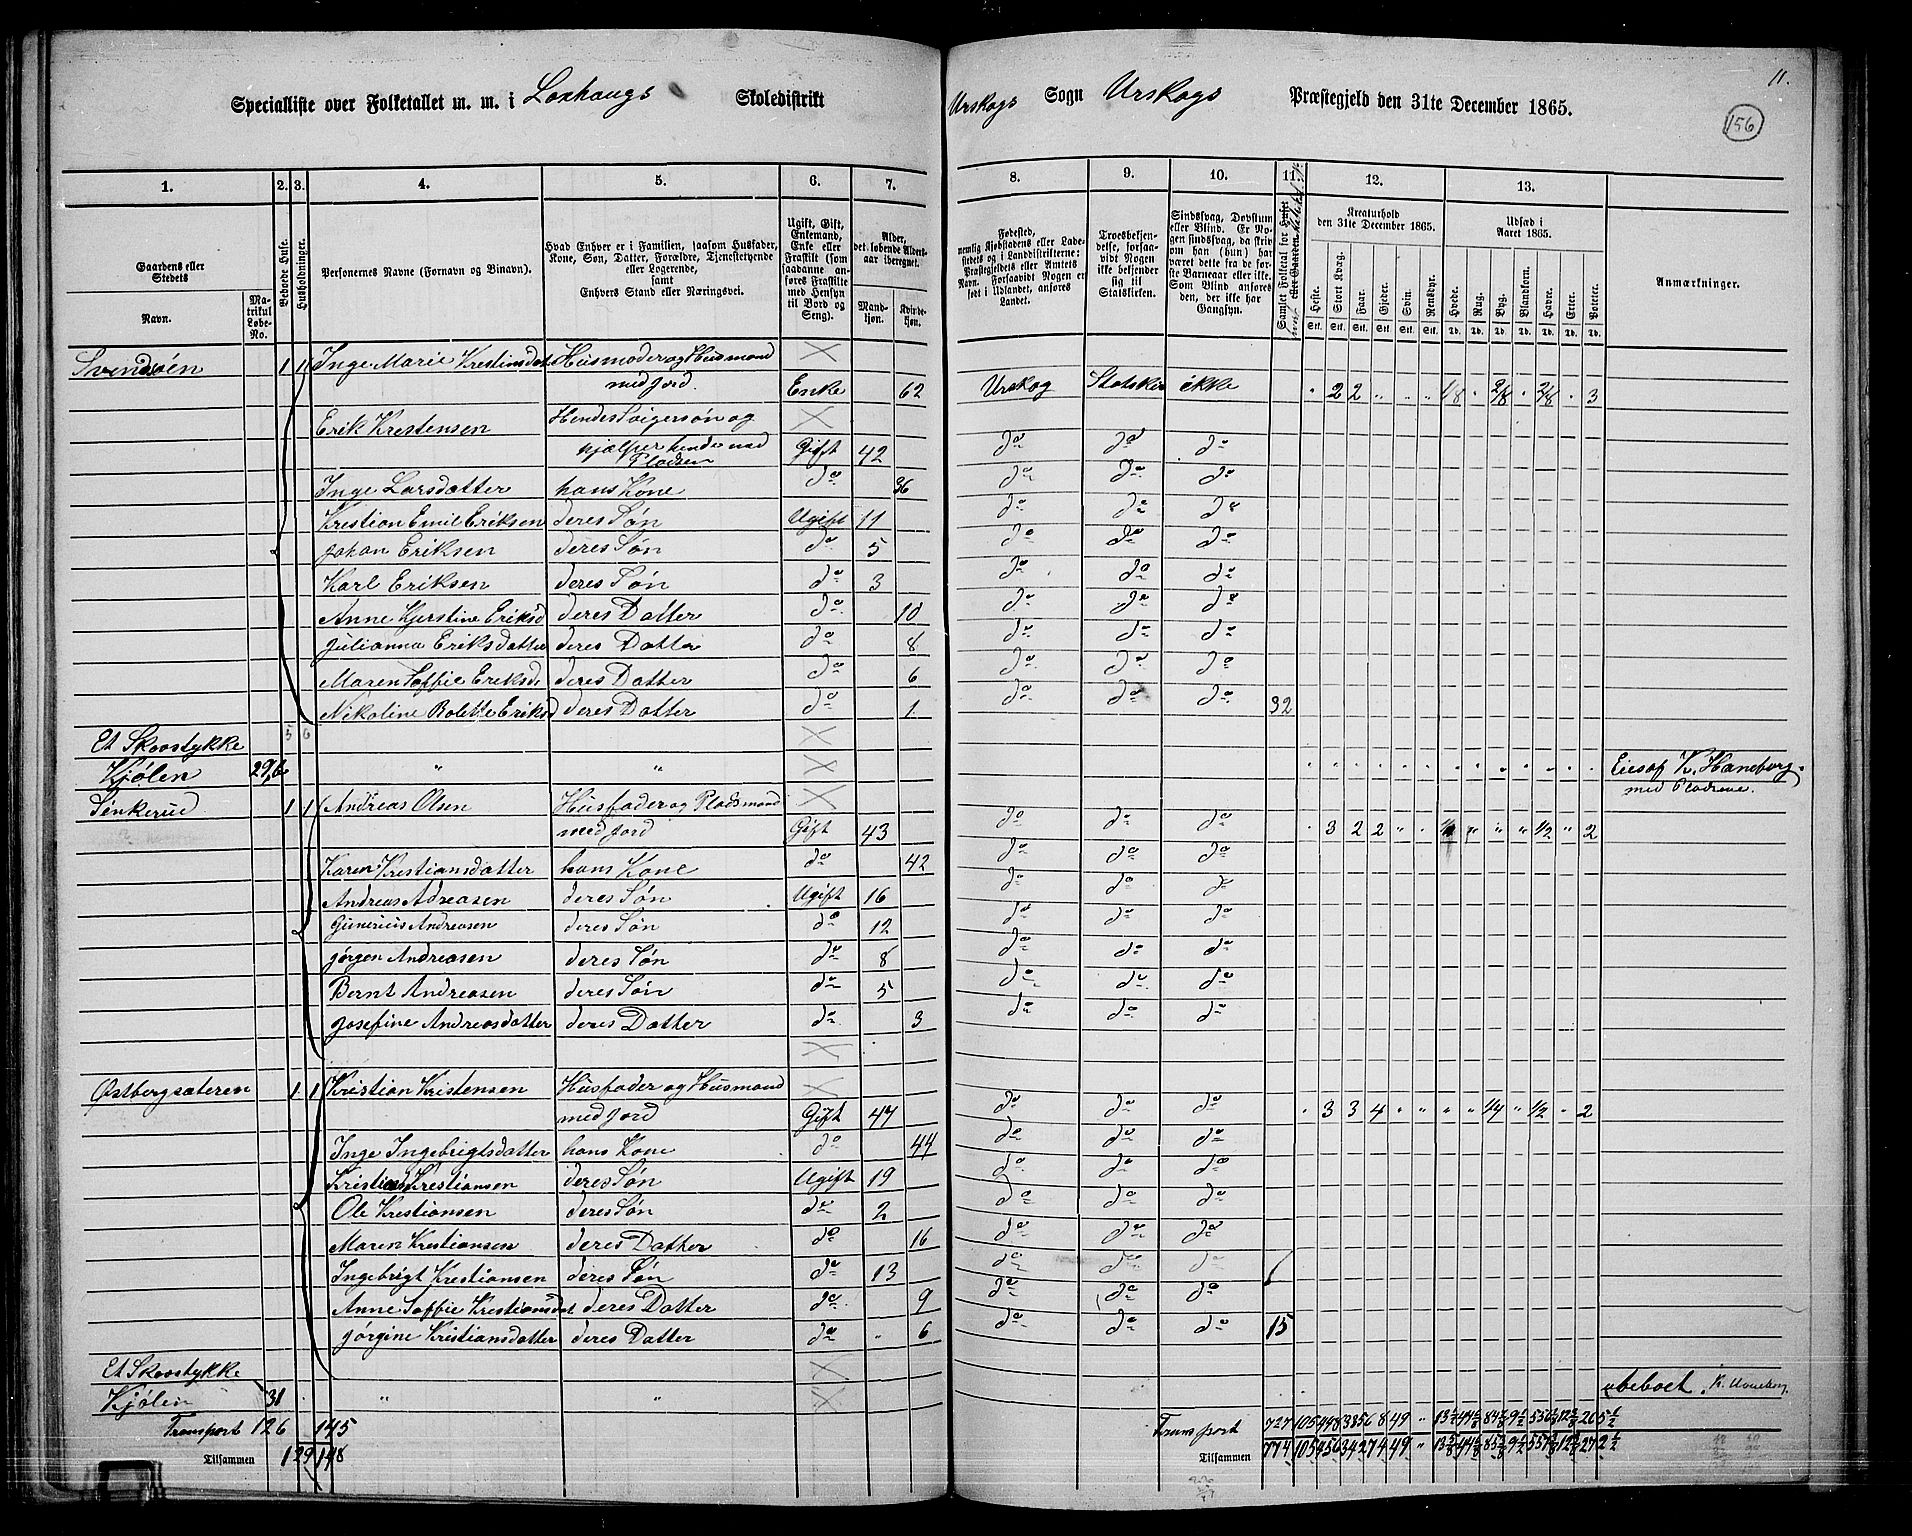 11.
156
Specialliste over Folketallet m. m. i Loxhaugs Skoledistrikt Urskogs Sogn Urskogs Præstegjeld den 31te December 1865.
1. 2. 3. 4. 5. 6. 7. 8. 9. 10. 11. 12. 13.
Gaardens eller Stedets
Navn.
Matrikul Løbe-No.
Beboede Huse.
Husholdninger.
Personernes Navne (Fornavn og Binavn).
Hvad Enhver er i Familien, saasom Husfader, Kone, Søn, Datter, Forældre, Tjenestetyende eller Logerende, samt Enhvers Stand eller Næringsvei.
Ugift, Gift, Enkemand, Enke eller Fraskilt (som saadanne anføres Fraskilte med Hensyn til Bord og Seng).
Alder, det løbende Aldersaar iberegnet.
Mandkjøn. Kvindekjøn.
Fødested, nemlig Kjøbstadens eller Ladestedets og i Landdistrikterne: Præstegjeldets eller Amtets Navn. Forsaavidt Nogen er født i Udlandet, anføres Landet.
Troesbekjendelse, forsaavidt Nogen ikke bekjender sig til Statskirken.
Sindssvag, Døvstum eller Blind. Er Nogen sindssvag, da skrives om han (hun) har været dette fra de første Barneaar eller ikke. Som Blind anføres den, der ikke har Gangsyn.
Samlet Folketal for Huset
Kreaturhold den 31te December 1865.
Heste. Stort Kvæg. Faar. Gjeder. Svin. Rensdyr.
Udsæd i Aaret 1865.
Hvede. Rug. Byg. Blandkorn. Havre. Erter. Poteter.
Anmærkninger.
Svendsøen 1 1 Inge Marie Krestiansdat Husmoder og Husmand
med jord. Enke 62 Urskog Statskir ikke " 2 2 " " " 1/8 " 2/8 " 2/8 " 3
Erik Krestensen Hendes Svigersøn og
hjælper hende med Pladsen Gift 42 do do do
Inge Larsdatter hans Kone do 36 do do do
Krestian Emil Eriksen deres Søn Ugift 11 do do do
Johan Eriksen deres Søn do 5 do do do
Karl Eriksen deres Søn do 3 do do do
Anne Kjerstine Eriksd deres Datter do 10 do do do
Julianna Eriksdatter deres Datter do 8 do do do
Maren Soffie Eriksd deres Datter do 6 do do do
Nikoline Bolette Eriksd deres Datter do 1 do do do 32
Et Skovstykke 5 6
Kjølen 29,6 " " Eies af K. Haneborg
med Pladsene.
Senkerud 1 1 Andreas Olsen Husfader og Pladsmand
med jord Gift 43 do do do " 3 2 2 " " " " " 1/2 " 2
Karen Krestiansdatter hans Kone do 42 do do do
Andreas Adreasen deres Søn Ugift 16 do do do
Gunerius Andreasen deres Søn do 12 do do do
Jørgen Andreasen deres Søn do 8 do do do
Bernt Andreasen deres Søn do 5 do do do
Josefine Andreasdatter deres Datter do 3 do do do
Østbergsæteren 1 1 Kristian Kristensen Husfader og Husmand
med jord Gift 47 do do do " 3 3 4 " " " " 1/4 " 1/2 " 2
Inge Ingebrigtsdatter hans Kone do 44 do do do
Kristian Krestiansen deres Søn Ugift 19 do do do
Ole Krestiansen deres Søn do 2 do do do
Maren Krestiansen deres Datter do 16 do do do
Ingebrigt Krestiansen deres Søn do 13 do do do
Anne Soffie Krestiansdat deres Datter do 9 do do do
Jørgine Kristiansdatter deres Datter do " 6 do do do 15
Et Skovstykke
Kjølen 31 " " ubeboet
Transport 126 145 Transport 727
Tilsammen 129 148 Tilsammen 774